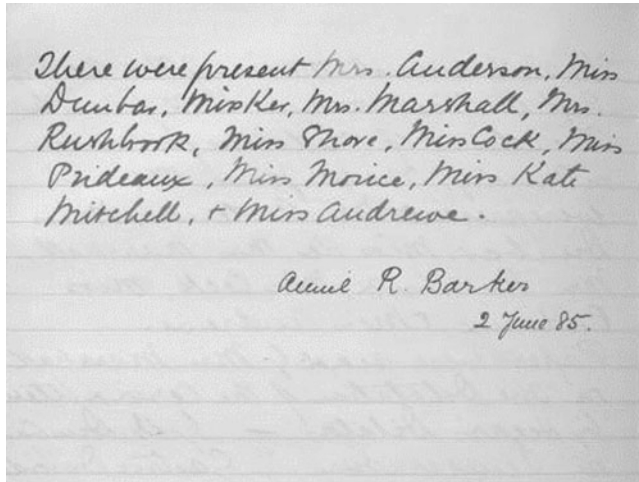 There were present Mrs. Anderson, Miss
Dunbar, Miss Ker, Mrs. Marshall, Mrs.
Rushbrook, Miss Shove, Miss Cock, Miss
Prideaux, Miss Morice, Miss Kate
Mitchell, + Miss Andrewe.
Annie R. Barker
2 June 85.